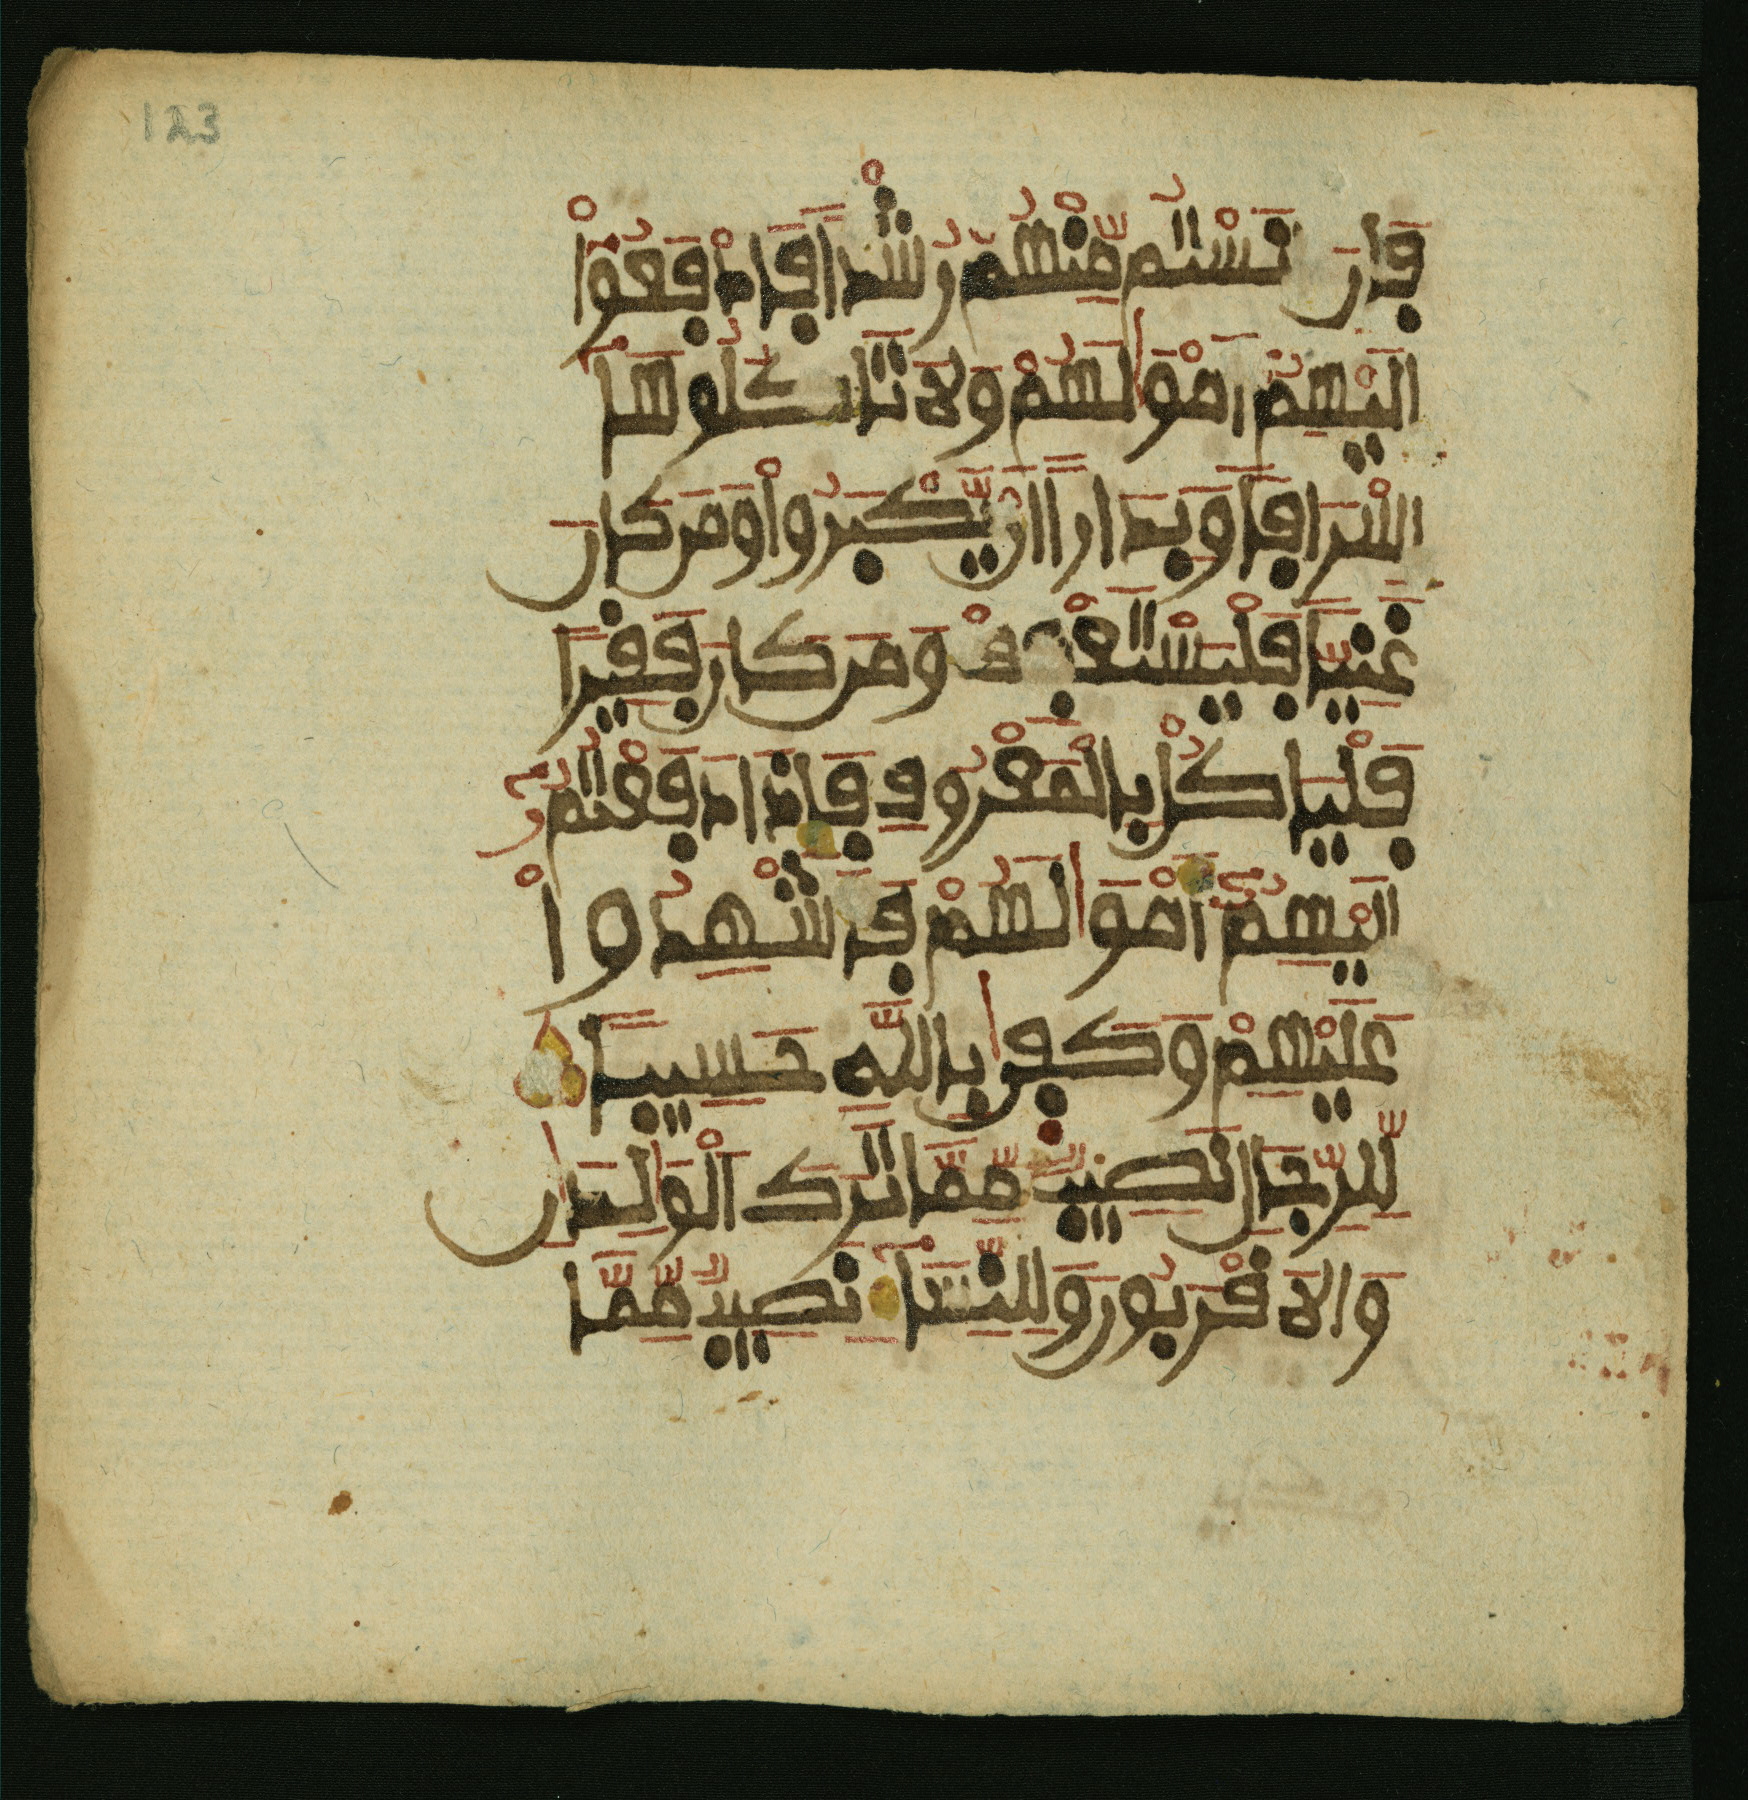 123
فَإِنَ انَسْتُم مِّنْهُمْ رُشْدًا فَادْفَعُوٓاْ
إِلَيْهِمُۥٓ أَمْوَٰلَهُمْ وَلَا تَاكُلُوهَآ
إِسْرَافًا وَبِدَارًا أَنْ يَّكْبَرُواْ وَمَن كَانَ
غَنِيًّا فَلْيَسْتَعْفِفْ وَمَن كَانَ فَقِيرًا
فَلْيَاكُلْ بِالْمَعْرُوفِ فَإِذَا دَفَعْتُمُۥٓ
إِلَيْهِمُۥٓ أَمْوَٰلَهُمْ فَأَشْهِدُواْ
عَلَيْهِمْ وَكَفَىٰ بِاللَّهِ حَسِيبًا
لِّلرِّجَالِ نَصِيبٌ مِّمَّا تَرَكَ الْوَٰلِدَٰنِ
وَالَاقْرَبُونَ وَلِلنِّسَآءِ نَصِيبٌ مِّمَّا